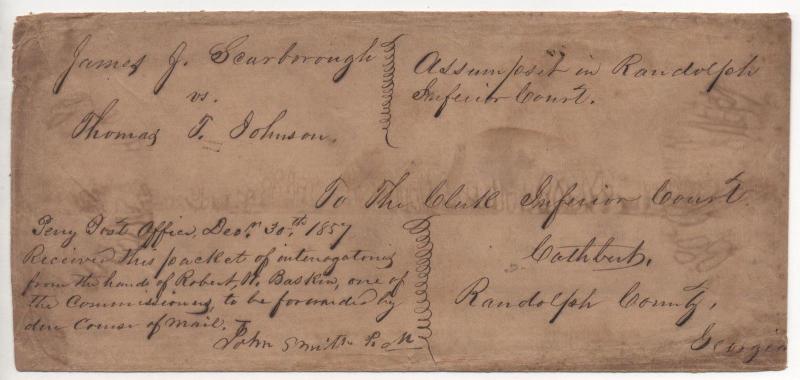 James J. Scarborough
vs.
Thomas T. Johnson.
Assumpsit in Randolph
Inferior Court.
To The Clerk Inferior Court
Cuthbert,
Randolph County,
Georgia
Perry Post Office, Decr. 30th 1857
Received this packet of interrogatories
from the hands of Robert N. Baskin, one of
the Commissioners, to be forwarded by
due course of mail.
John Smith P. M